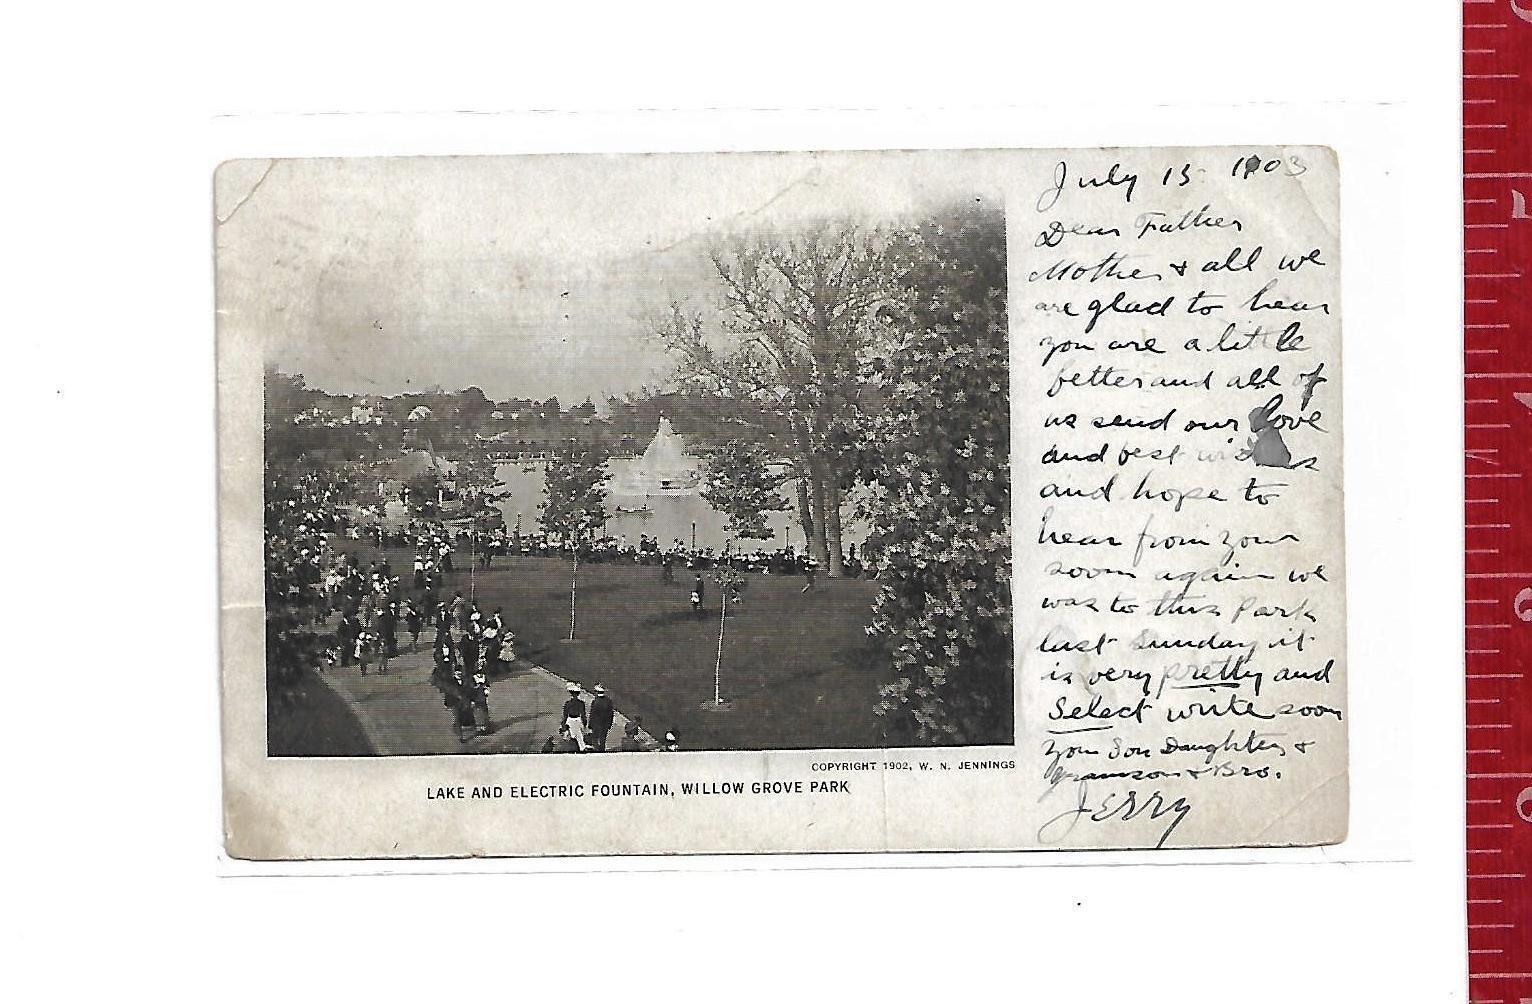 July 15 1903
Dear Father
Mother & all we
are glad to hear
you are a little
better and all of
us send our love
and best wishes
and hope to
hear from your
soon again we
was to this Park
last Sunday it
is very pretty and
Select write soon
your Son Daughter &
Gramson & Bro.
Jerry
COPYRIGHT 1902, W. N. JENNINGS
LAKE AND ELECTRIC FOUNTAIN, WILLOW GROVE PARK